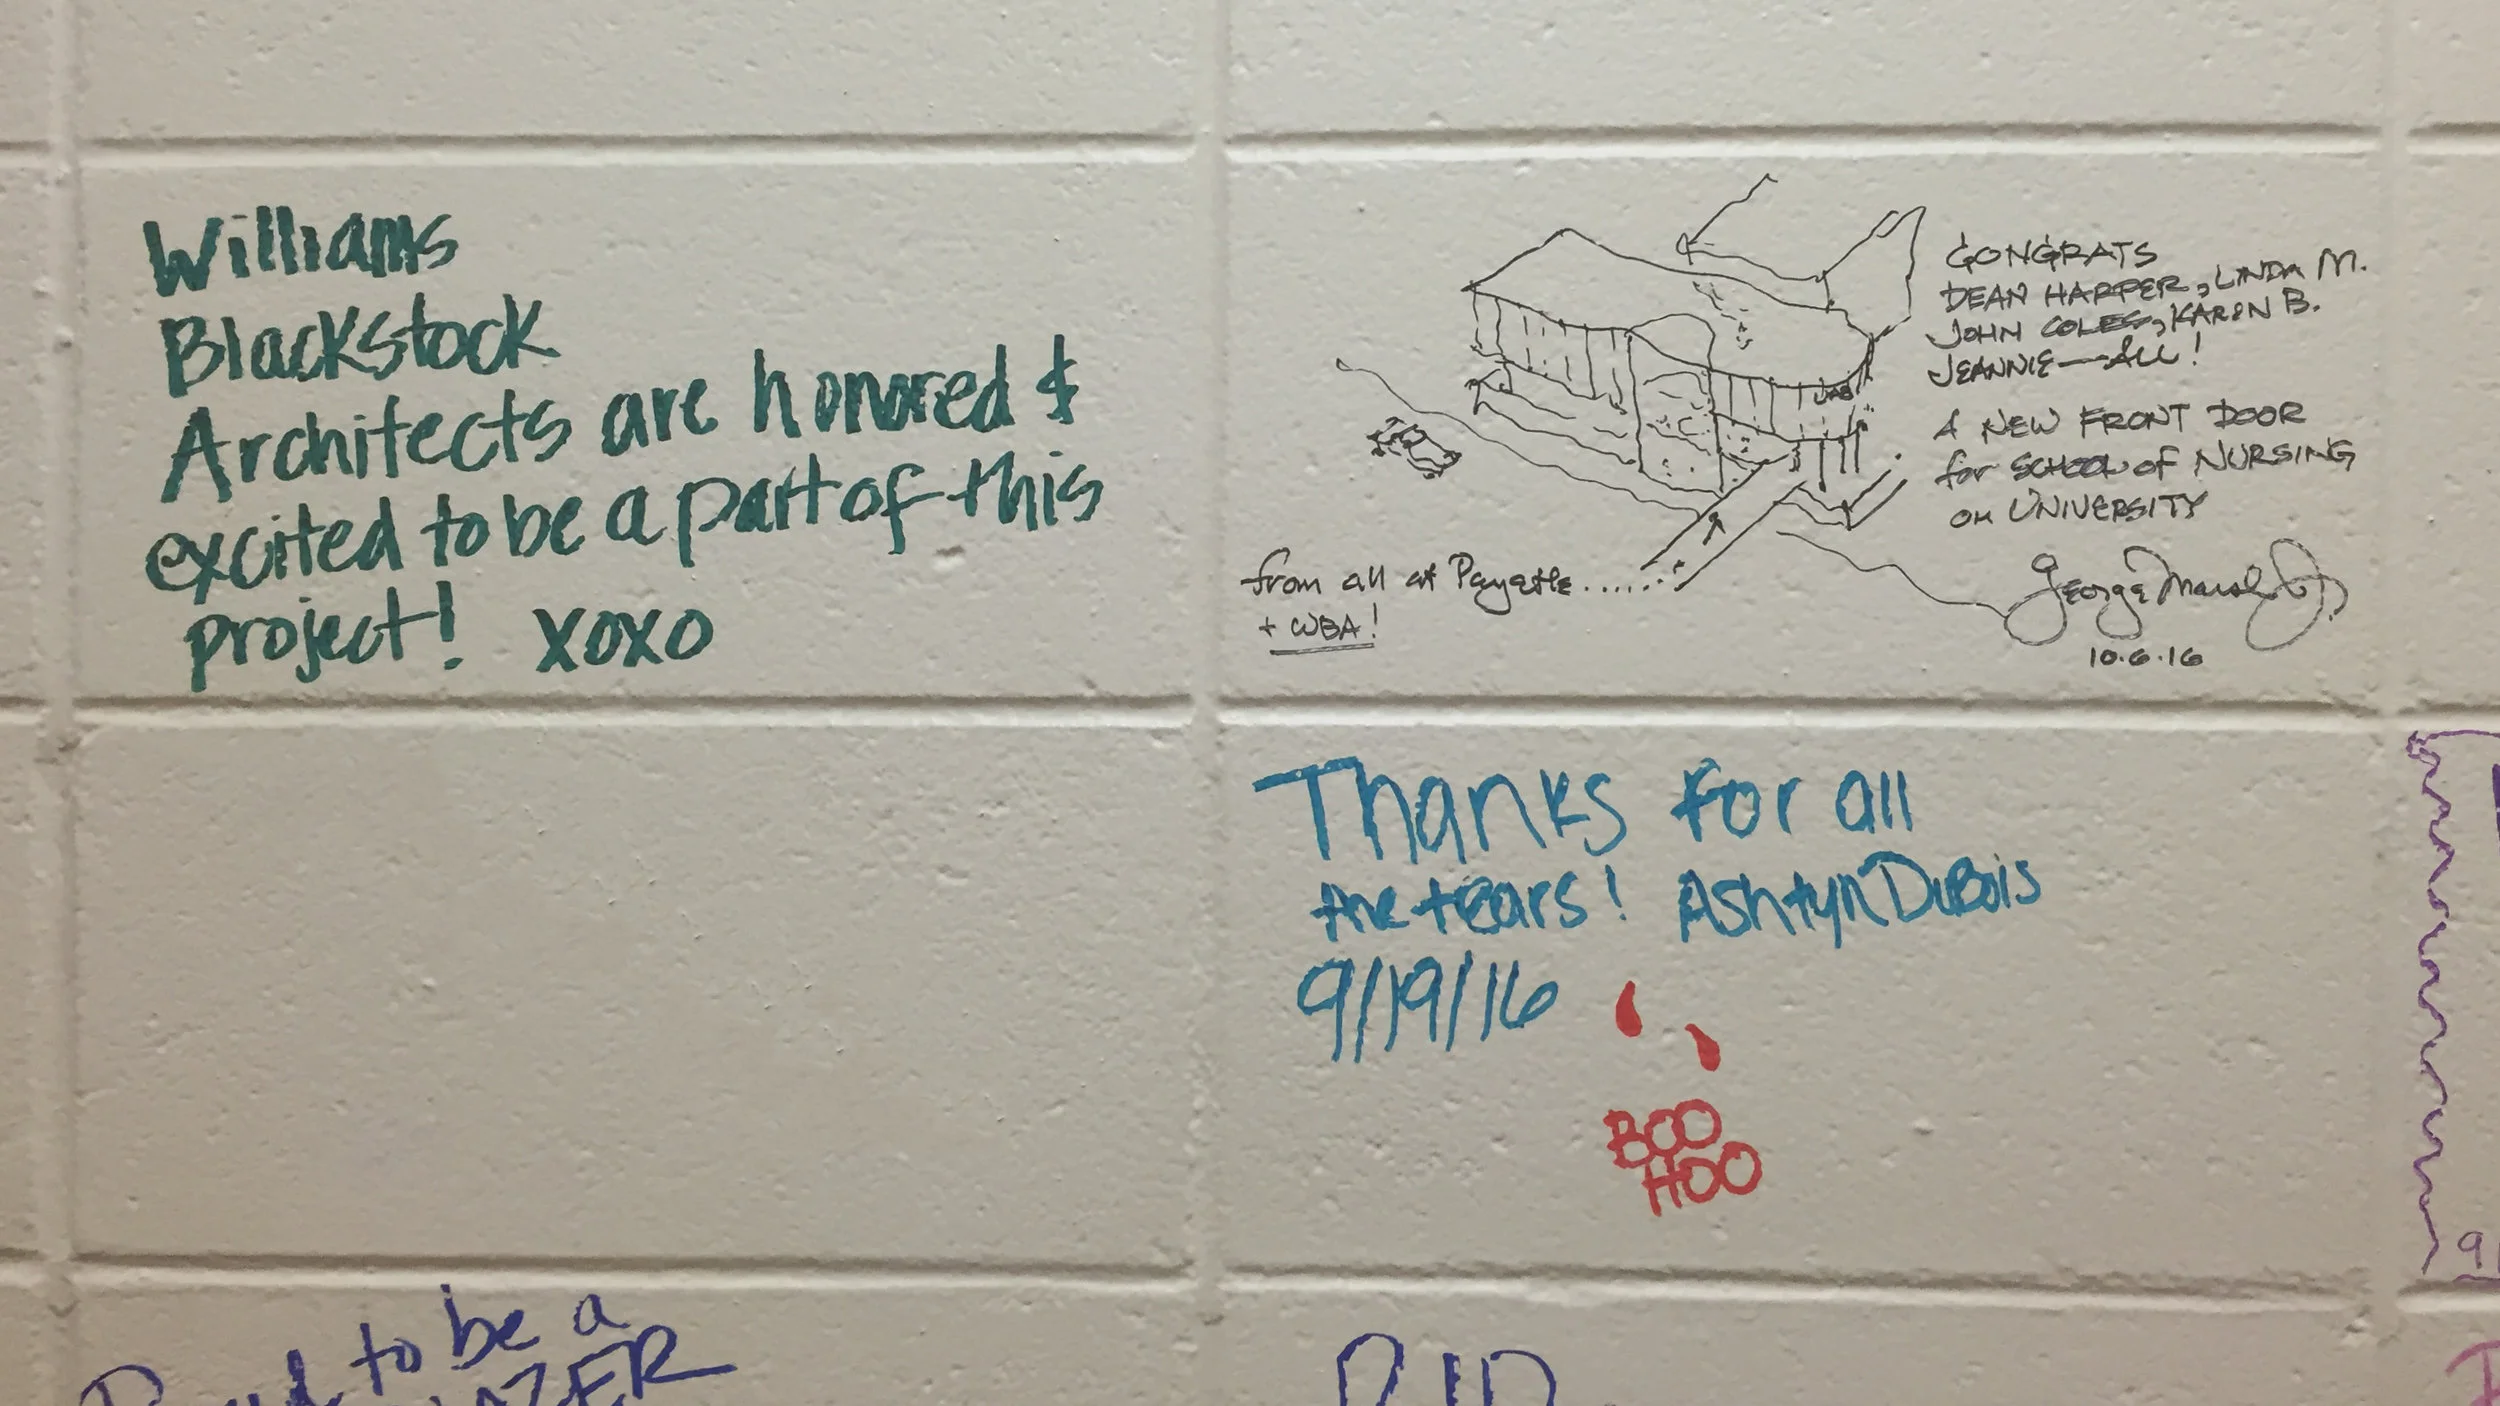 Williams
Blackstock
Architects are honored &
excited to be a part of this
project! xoxo
CONGRATS
DEAN HARPER, LINDA M.
JOHN COLES, KAREN B.
JEANNIE—ALL!
A NEW FRONT DOOR
for SCHOOL of NURSING
on UNIVERSITY
UAB
from all at Payette......
+ WBA!
George Marsh
10.6.16
Thanks for all
the tears! Ashtyn DuBois
9/19/16
BOO
HOO
to be a
RIP